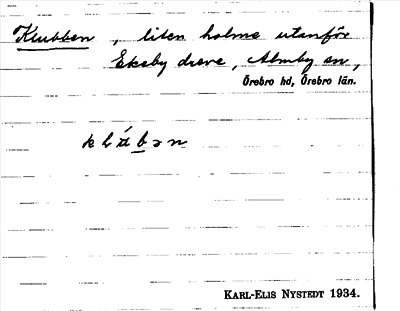 Klubben, liten holme utanför
Ekeby dreve, Almby sn,
Örebro hd, Örebro län.
KARL-ELIS NYSTEDT 1934.